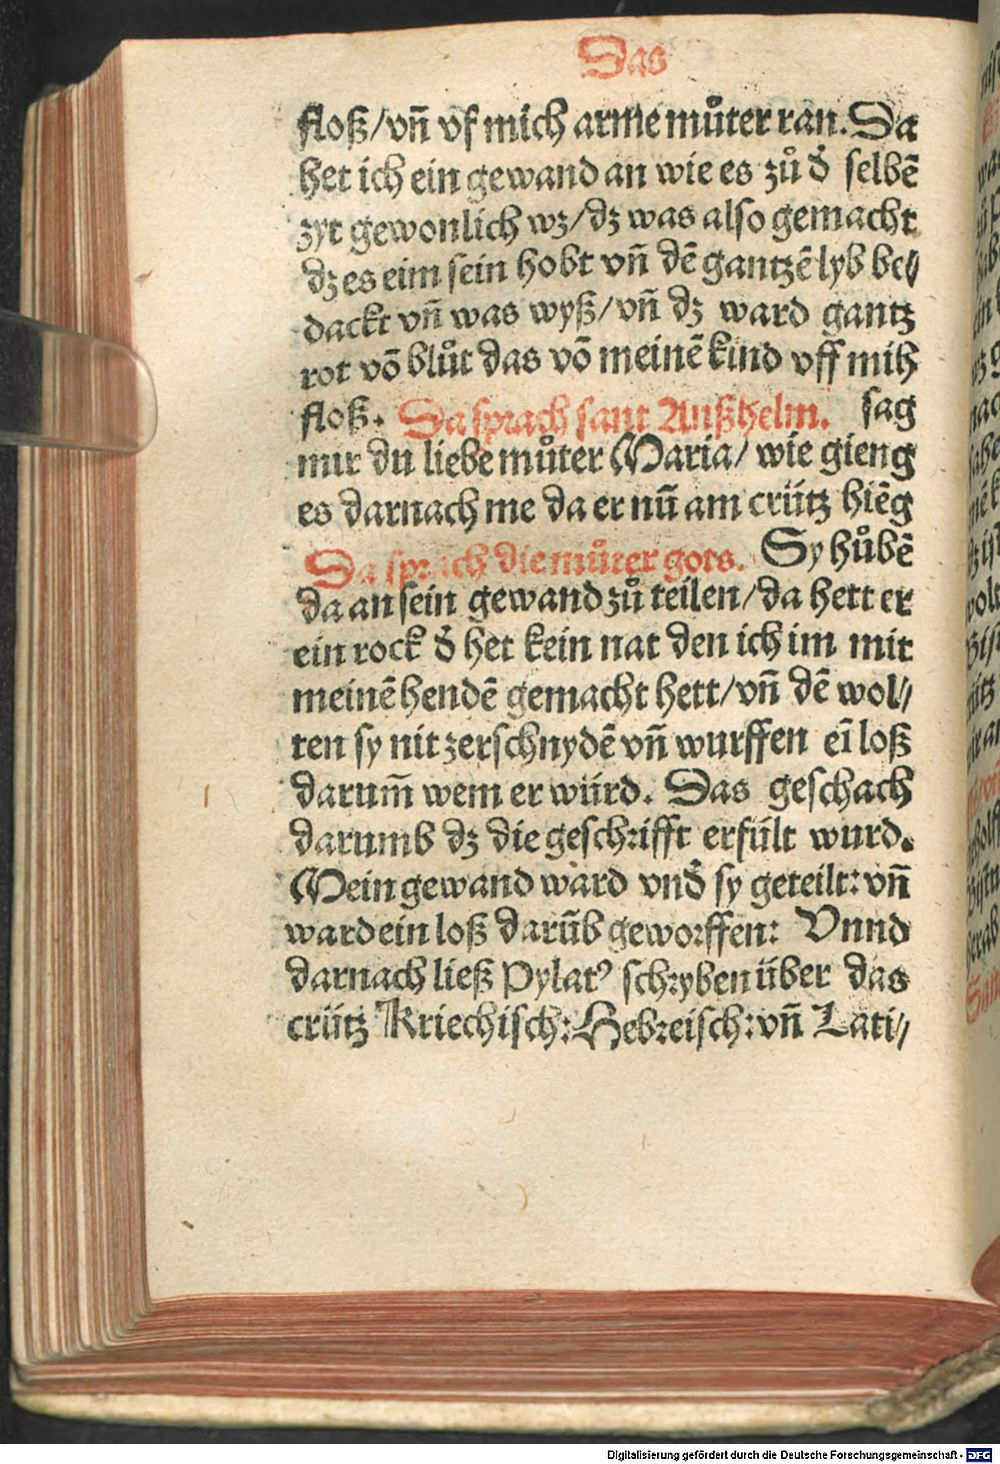 Das
floß/vñ vf mich arme můter ran. Da
het ich ein gewand an wie es zů d̕ selbē
zyt gewonlich wz/dz was also gemacht
dz es eim sein hobt vñ dē gantzē lyb be⸗
dackt vñ was wyß/vñ dz ward gantz
rot vō blůt das vō meinē kind vff mih
floß. Da sprach sant Anßhelm. sag
mir du liebe můter Maria/ wie gieng
es darnach me da er nū am crütz hiēg
Da sprach die můter gots. Sy hůbē
da an sein gewand zů teilen/da hett er
ein rock d̕ het kein nat den ich im mit
meinē hendē gemacht hett/vñ dē wol⸗
ten sy nit zerschnydē vñ wurffen eī loß
darum̄ wem er würd. Das geschach
darumb dz die geschrifft erfült wurd.
Mein gewand ward vnd̕ sy geteilt: vñ
ward ein loß darūb geworffen: Vnnd
darnach ließ Pylatꝰ schryben über das
crütz Kriechisch: Hebreisch: vñ Lati⸗
Digitalisierung gefördert durch die Deutsche Forschungsgemeinschaft - DFG